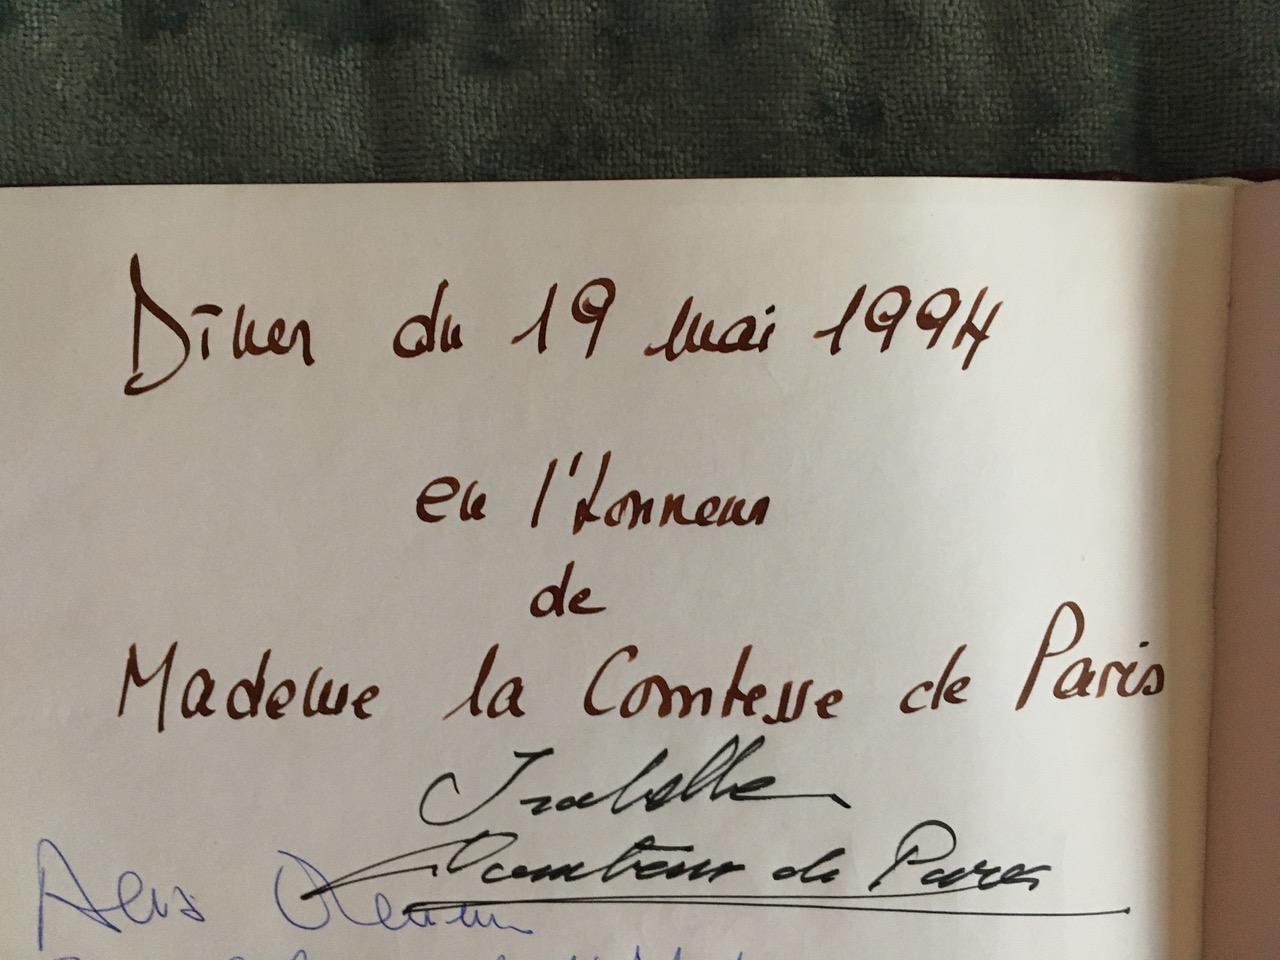 Dîner du 19 mai 1994
en l'honneur
de
Madame la Comtesse de Paris
Isabelle
Comtesse de Paris